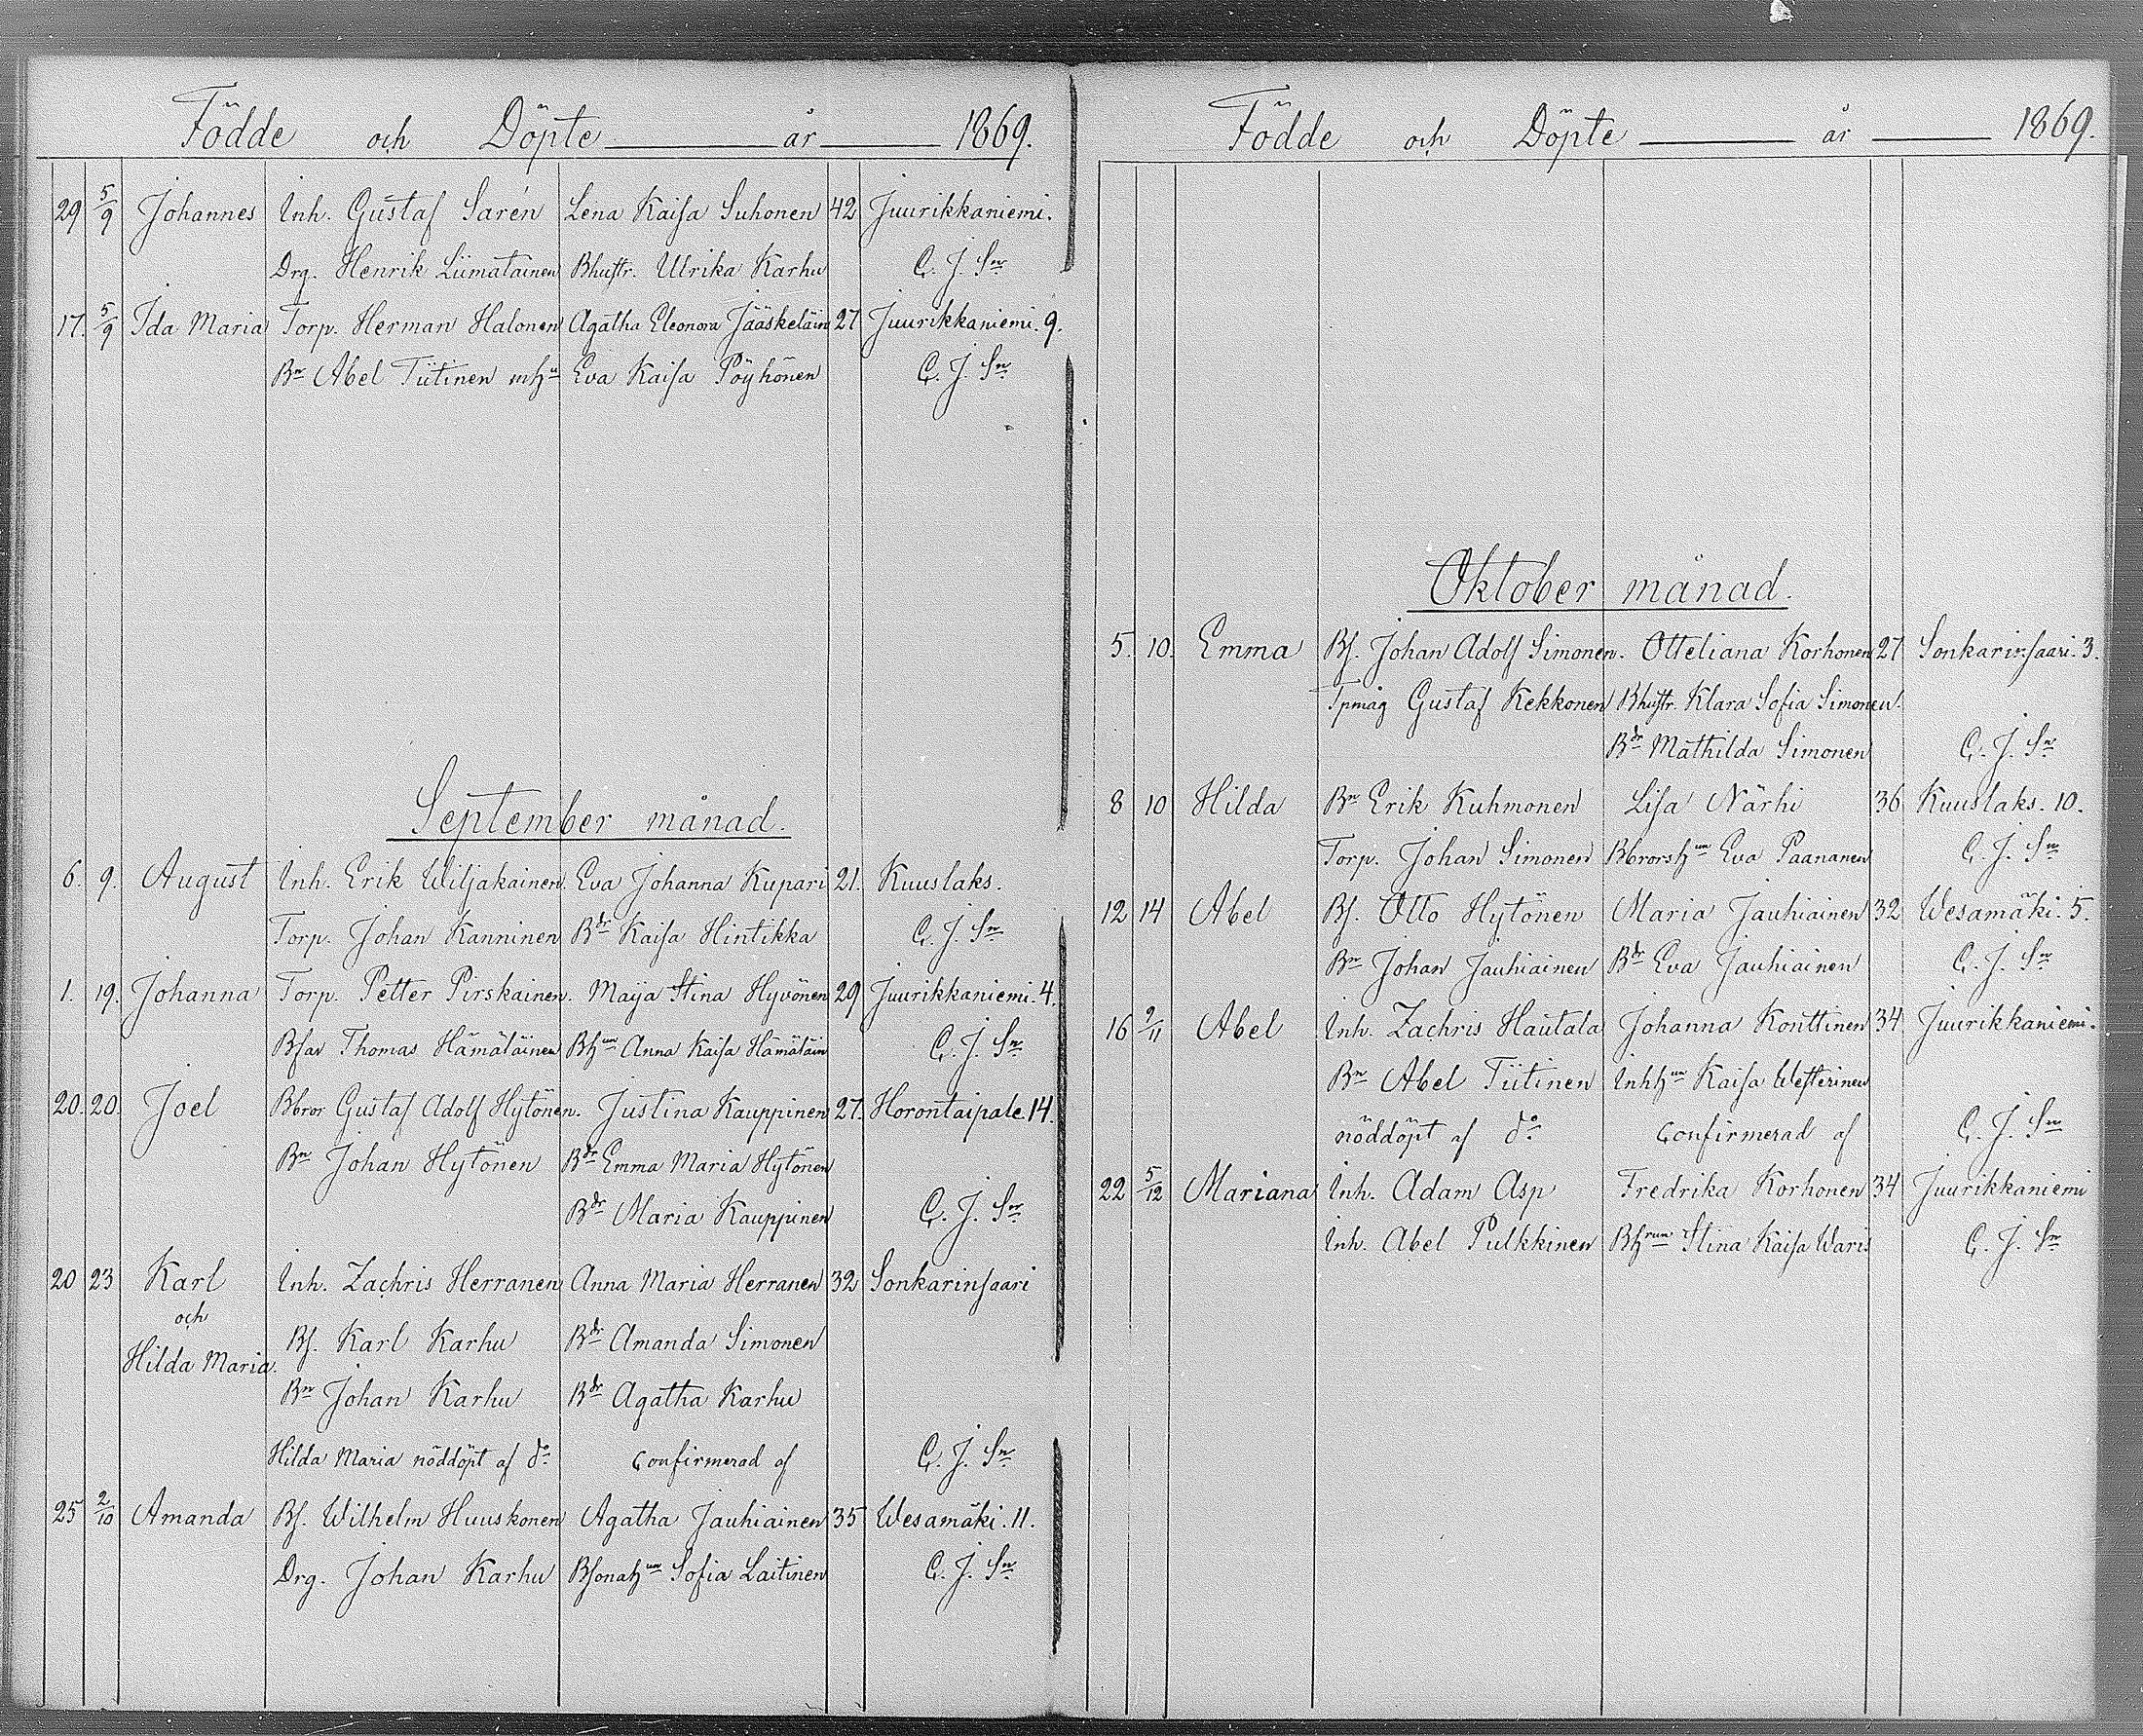 Födde och Döpte år 1869.
29 5/9 Johannes Inh. Gustaf Sarén Lena Kaisa Suhonen 42 Juurikkaniemi.
Drg. Henrik Liimatainen Bhustr. Ulrika Karhu C. J. Sn
17. 5/9 Ida Maria Torp. Herman Halonen Agatha Eleonora Jääskeläin 27 Juurikkaniemi. 9.
Bn Abel Tiitinen mhu Eva Kaisa Pöyhönen C. J. Sn
September månad.
6. 9. August Inh. Erik Wiljakainen. Eva Johanna Kupari 21. Kuuslaks.
Torp. Johan Kanninen Bdr Kaisa Hintikka C. J. Sn
1. 19. Johanna Torp. Petter Pirskainen. Maija Stina Hyvönen 29 Juurikkaniemi. 4.
Bfar Thomas Hämäläinen Bhun Anna Kaisa Hämäläin C. J. Sn
20. 20. Joel Bbror Gustaf Adolf Hytönen. Justina Kauppinen 27. Horontaipale. 14.
Bn Johan Hytönen Bdr Emma Maria Hytönen
Bdr Maria Kauppinen C. J. Sn
20 23 Karl Inh. Zachris Herranen Anna Maria Herranen 32 Sonkarinsaari
och
Bs. Karl Karhu Bdr Amanda Simonen
Hilda Maria.
Bn Johan Karhu Bdr Agatha Karhu
Hilda Maria nöddöpt af do Confirmerad af C. J. Sn
25 2/10 Amanda Bs. Wilhelm Huuskonen Agatha Jauhiainen 35 Wesamäki. 11.
Drg. Johan Karhu Bsonahun Sofia Laitinen C. J. Sn
Födde och Döpte år 1869.
Oktober månad.
5. 10. Emma Bs. Johan Adolf Simonen. Otteliana Korhonen 27 Sonkarinsaari. 3.
Tpmåg Gustaf Kekkonen Bhustr. Klara Sofia Simonen.
Bdr Mathilda Simonen C. J. Sn
8 10 Hilda Bn Erik Kuhmonen Lisa Närhi 36 Kuuslaks. 10.
Torp. Johan Simonen Bbrorshun Eva Paananen C. J. Sn
12 14 Abel Bs. Otto Hytönen Maria Jauhiainen 32 Wesamäki. 5.
Bn Johan Jauhiainen Bdr Eva Jauhiainen C. J. Sn
16 9/11 Abel Inh. Zachris Hautala Johanna Konttinen 34 Juurikkaniemi.
Bn Abel Tiitinen Inhhun Kaisa Westerinen
nöddöpt af do Confirmerad af C. J. Sn
22 5/12 Mariana Inh. Adam Asp Fredrika Korhonen 34 Juurikkaniemi
Inh. Abel Pulkkinen Bhrun Stina Kaisa Waris C. J. Sn